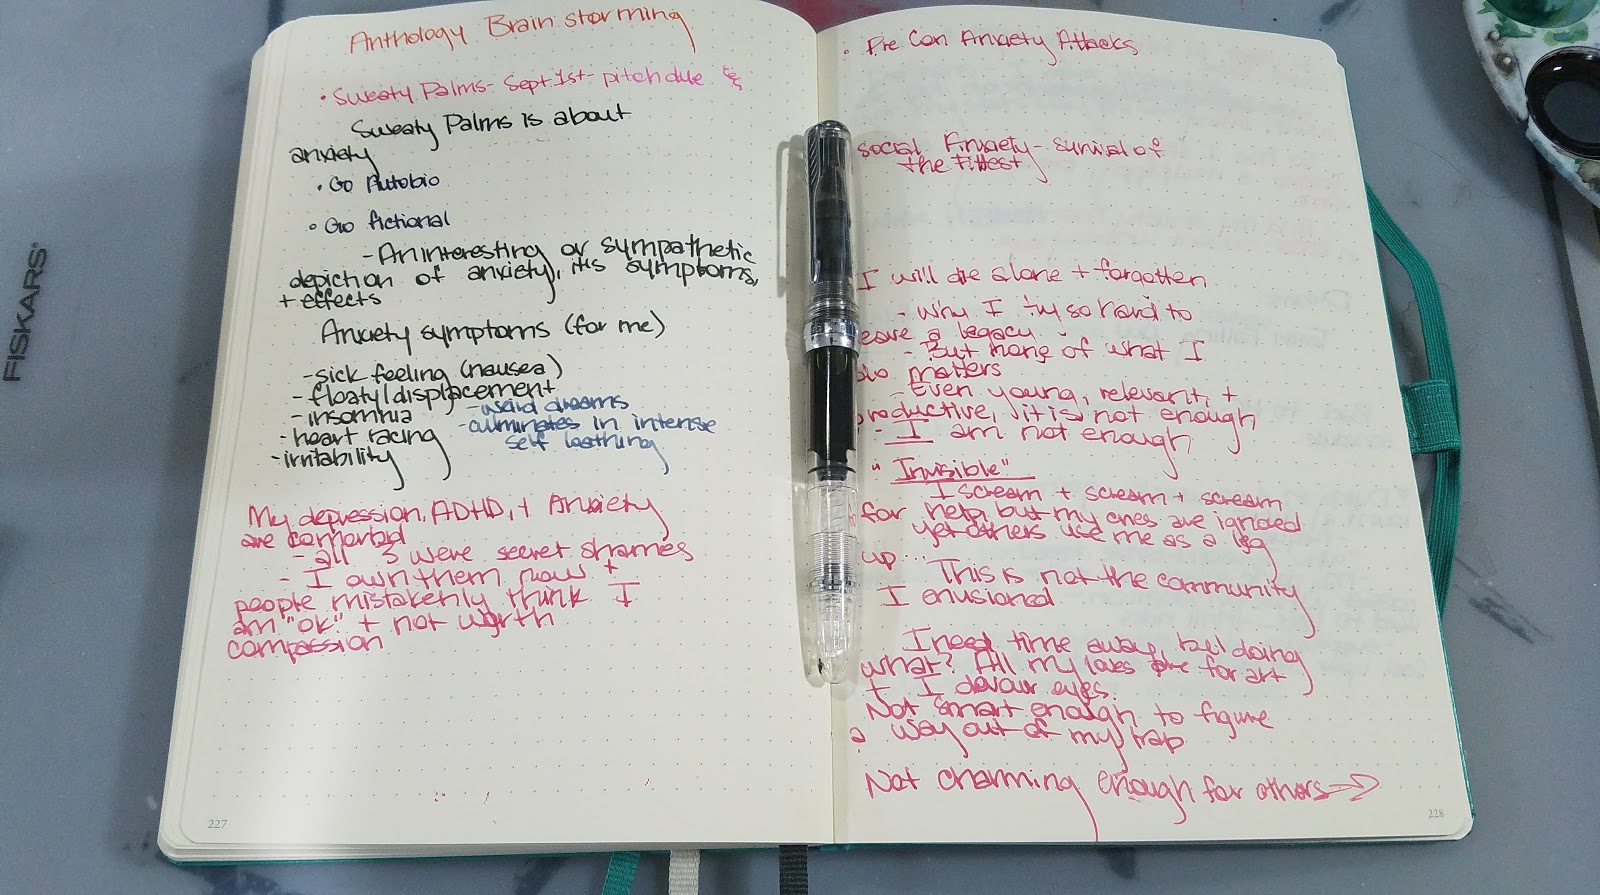 Anthology Brainstorming
• Sweaty Palms- Sept 1st- pitch due
Sweaty Palms is about
anxiety
• Go Autobio
• Go fictional
- An interesting or sympathetic
depiction of anxiety, its symptoms,
+ effects
Anxiety symptoms (for me)
- sick feeling (nausea)
- floaty/displacement
- insomnia
- heart racing
- irritability
- weird dreams
- culminates in intense
self loathing
My depression, ADHD, + Anxiety
are comorbid
- all 3 were secret shames
- I own them now +
people mistakenly think I
am "ok" + not worth
compassion
227
• Pre Con Anxiety Attacks
Social Anxiety - survival of
the fittest
I will die alone + forgotten
- Why I try so hard to
leave a legacy
- But none of what I
do matters
- Even young, relevant, +
productive, it is not enough
- I am not enough
"Invisible"
I scream + scream + scream
for help, but my cries are ignored
yet others use me as a leg
up... This is not the community
I envisioned
I need time away, but doing
what? All my loves are for art
+ I devour eyes.
Not smart enough to figure
a way out of my trap
Not charming enough for others →
228
FISKARS®